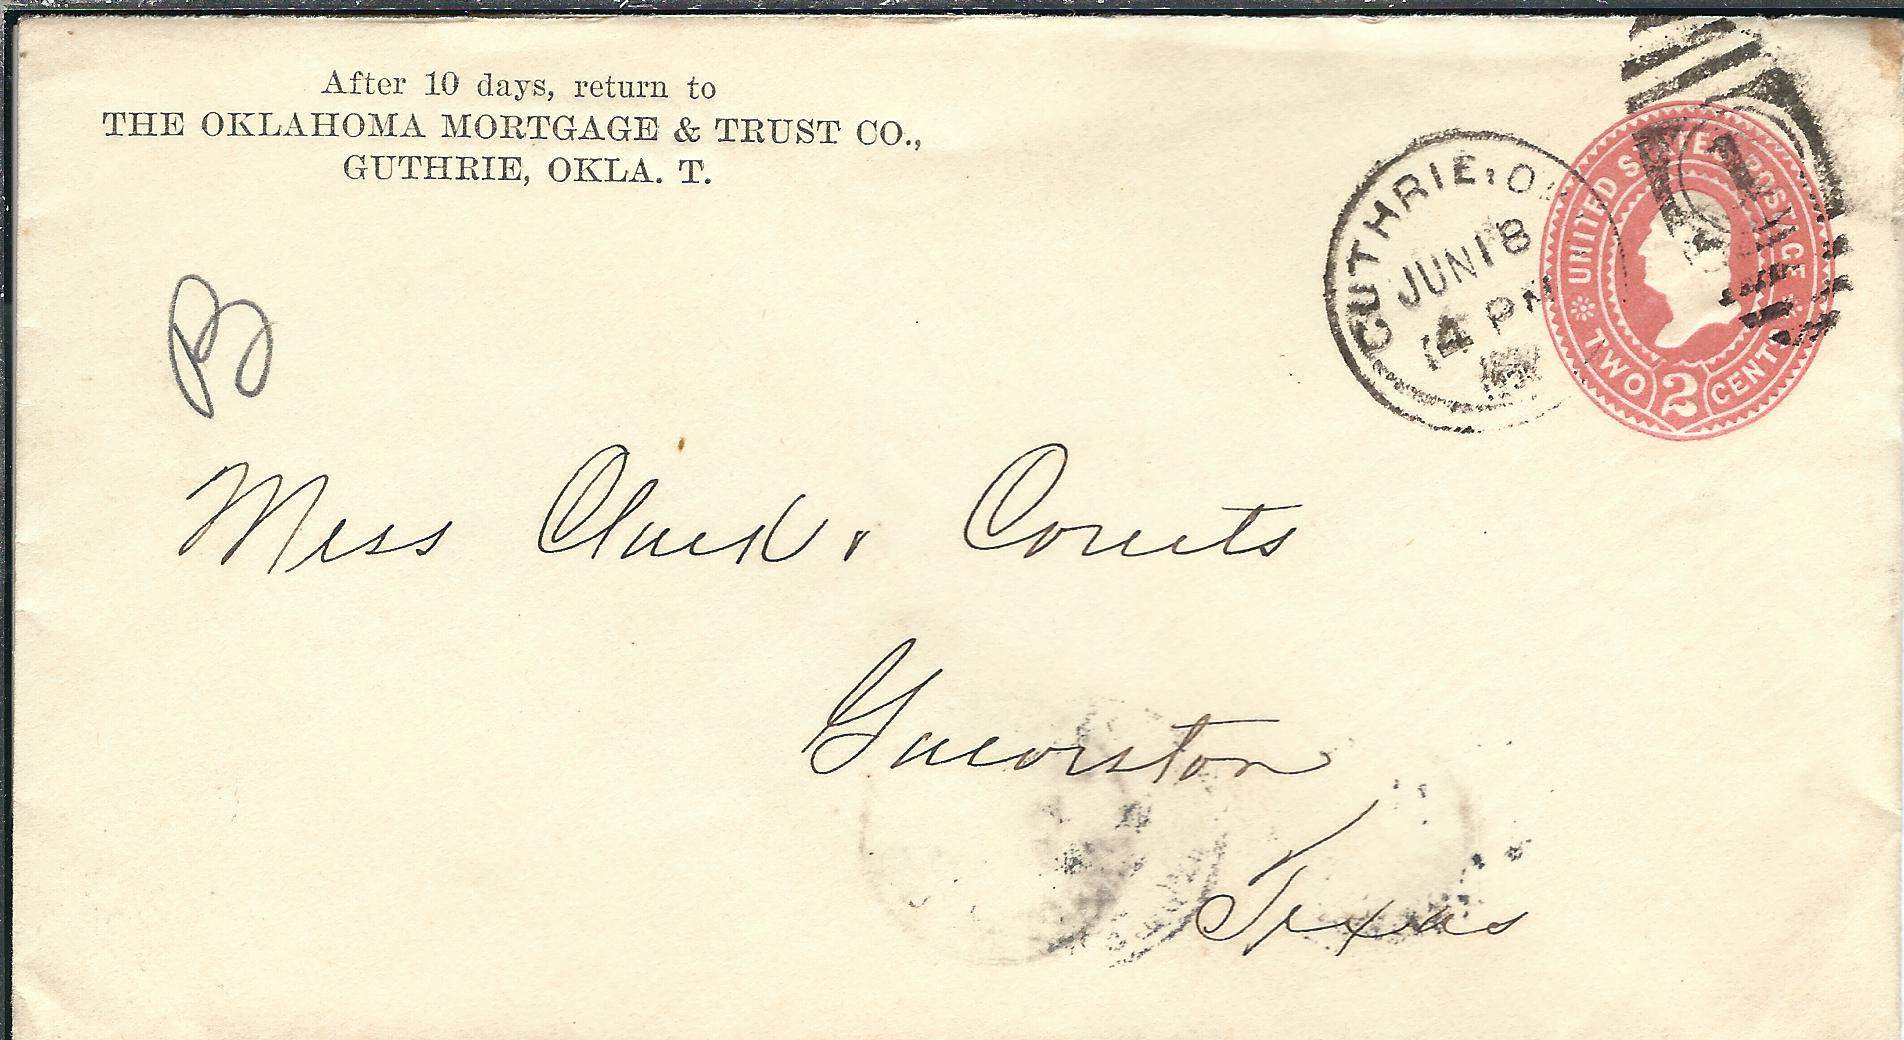 After 10 days, return to
THE OKLAHOMA MORTGAGE & TRUST CO.,
GUTHRIE, OKLA. T.
GUTHRIE, O
JUN 18
4 PM
UNITED STATES POSTAGE
TWO 2 CENTS
B
Mess Clark & Courts
Galveston
Texas